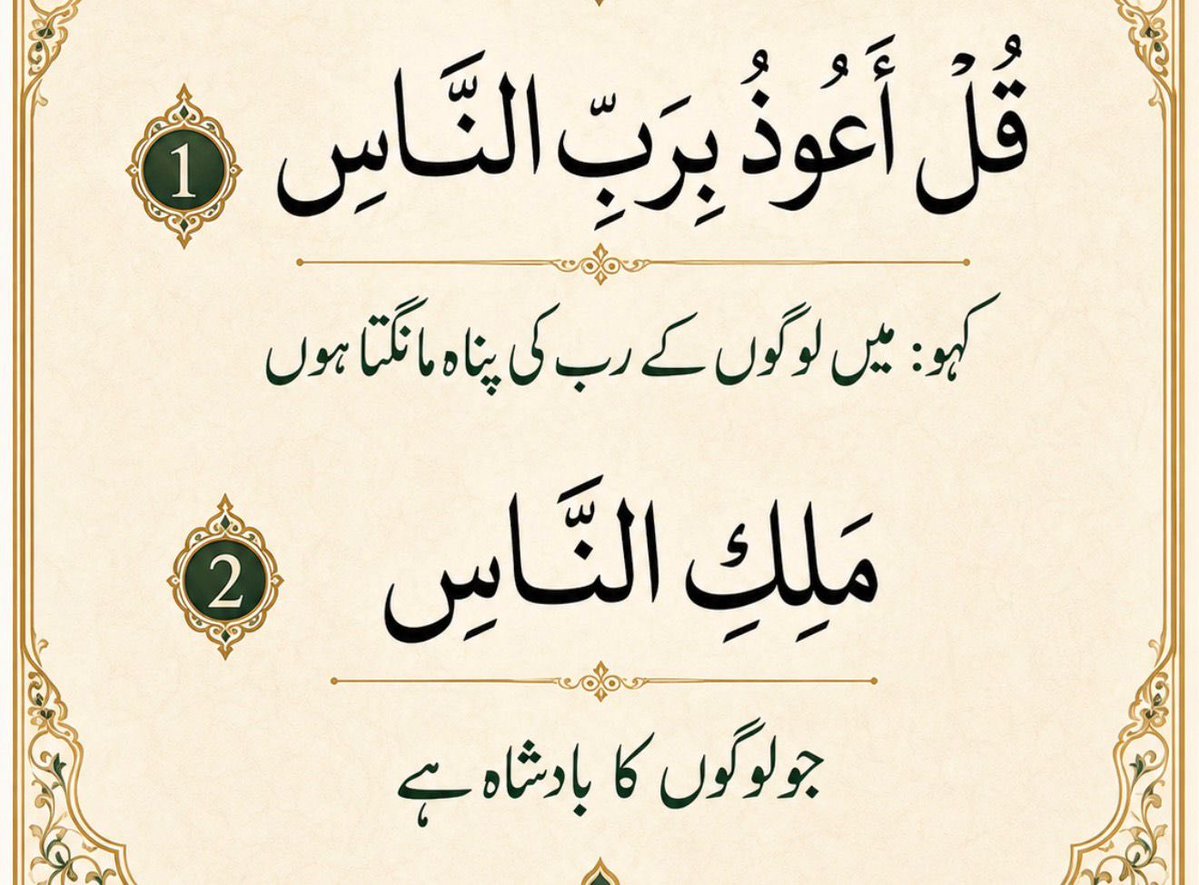 قُلْ أَعُوذُ بِرَبِّ النَّاسِ 1
کہو: میں لوگوں کے رب کی پناہ مانگتا ہوں
مَلِكِ النَّاسِ 2
جو لوگوں کا بادشاہ ہے